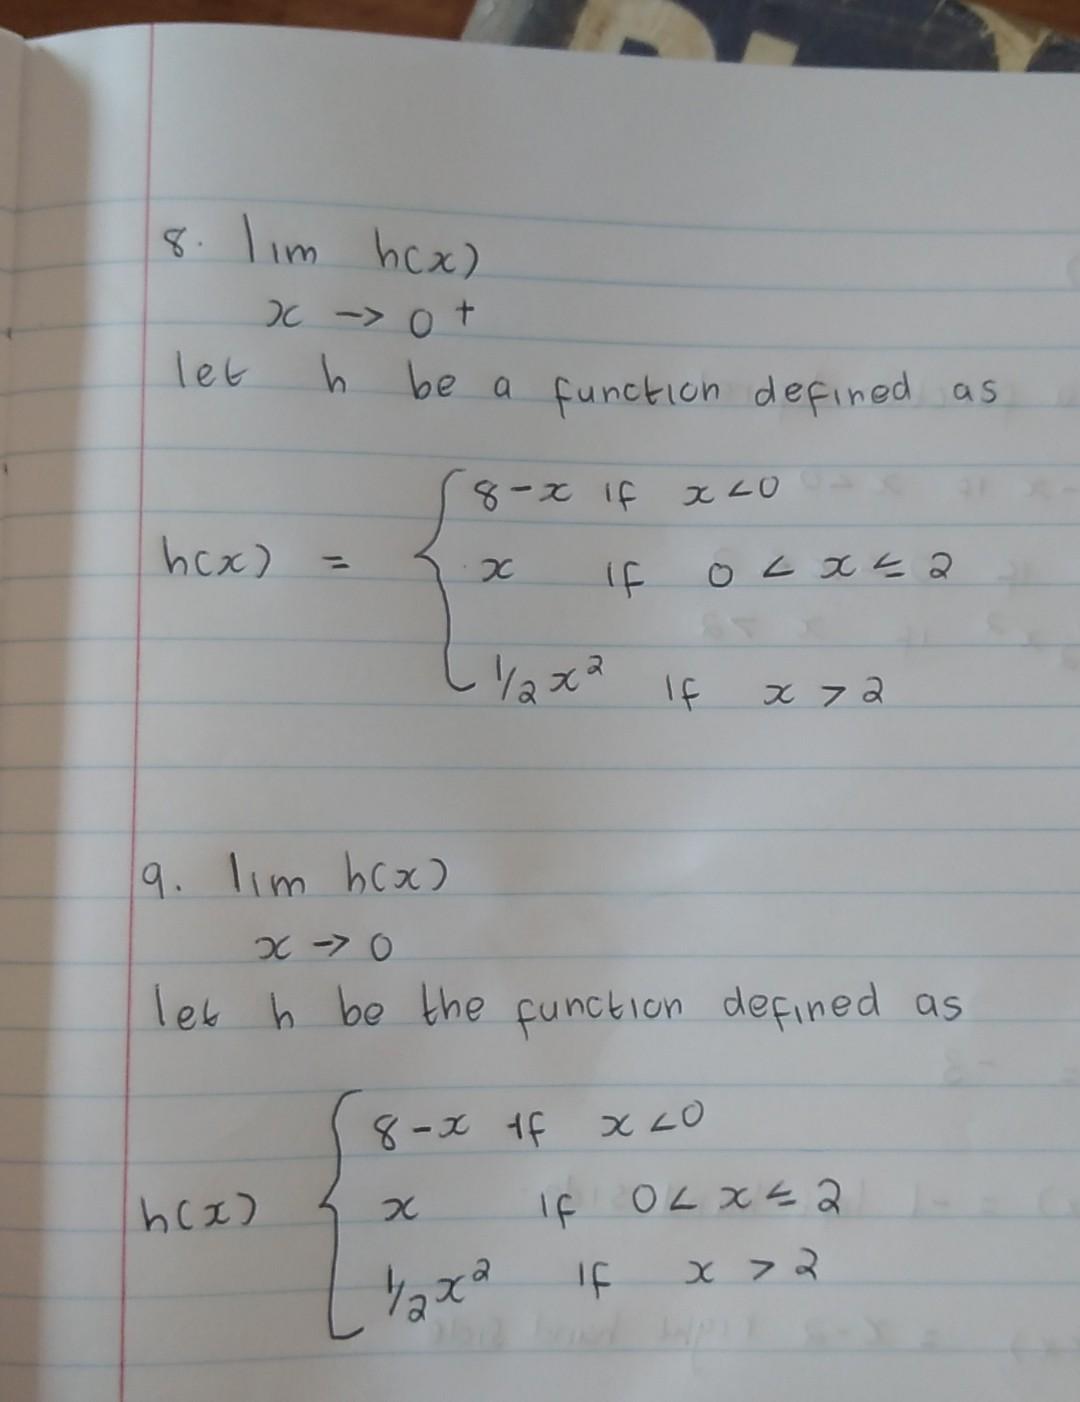 8. lim h(x)
x -> 0 +
let h be a function defined as
8-x if x<0
h(x) = { x if 0 < x ≤ 2
1/2 x² if x > 2
9. lim h(x)
x -> 0
let h be the function defined as
8-x if x<0
h(x) { x if 0 < x ≤ 2
1/2 x² if x > 2